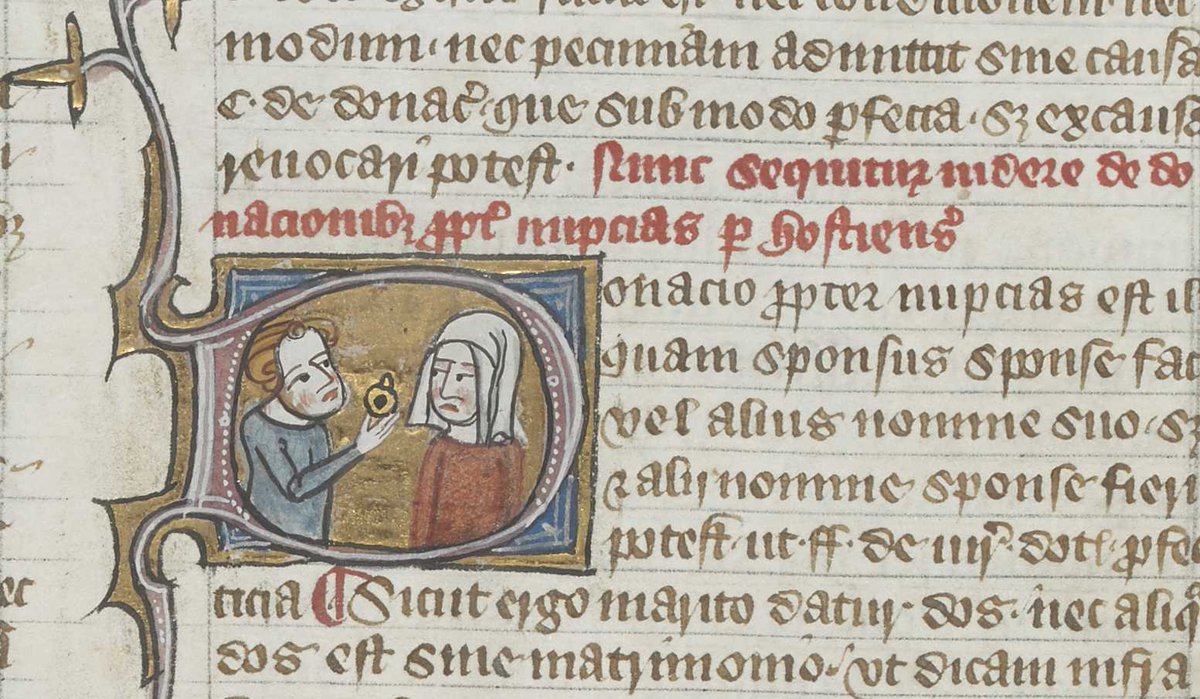 modum · nec pecuniam admittit sine causa
C · de donac̄ · que sub modo ꝑfecta · sꝫ ex causa
reuocari potest · Nunc sequitur uidere de do
nacionibꝫ ꝓpt̄ nupcias ꝑ hostiens̄
Donacio ꝓpter nupcias est il
quam sponsus sponse fac
vel alius nomine suo · sꝫ
⁊ alij nomine sponse fieri
potest · ut · ff · de · iur̄ · dot̄ · ꝑfe
ticia ¶ Sicut ergo marito datur · dos · nec aliq̄
dos est sine matrimonio · vt dicam infra